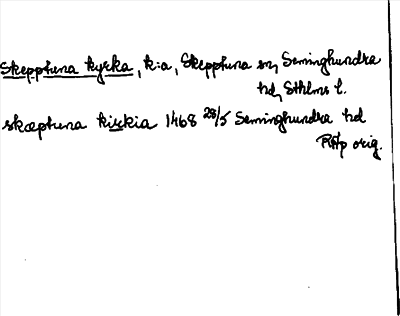 Skepptuna kyrka, k:a, Skepptuna sn, Seminghundra
hd, Sthlms l.
skæptuna kirkia 1468 28/5 Seminghundra hd
RAp orig.